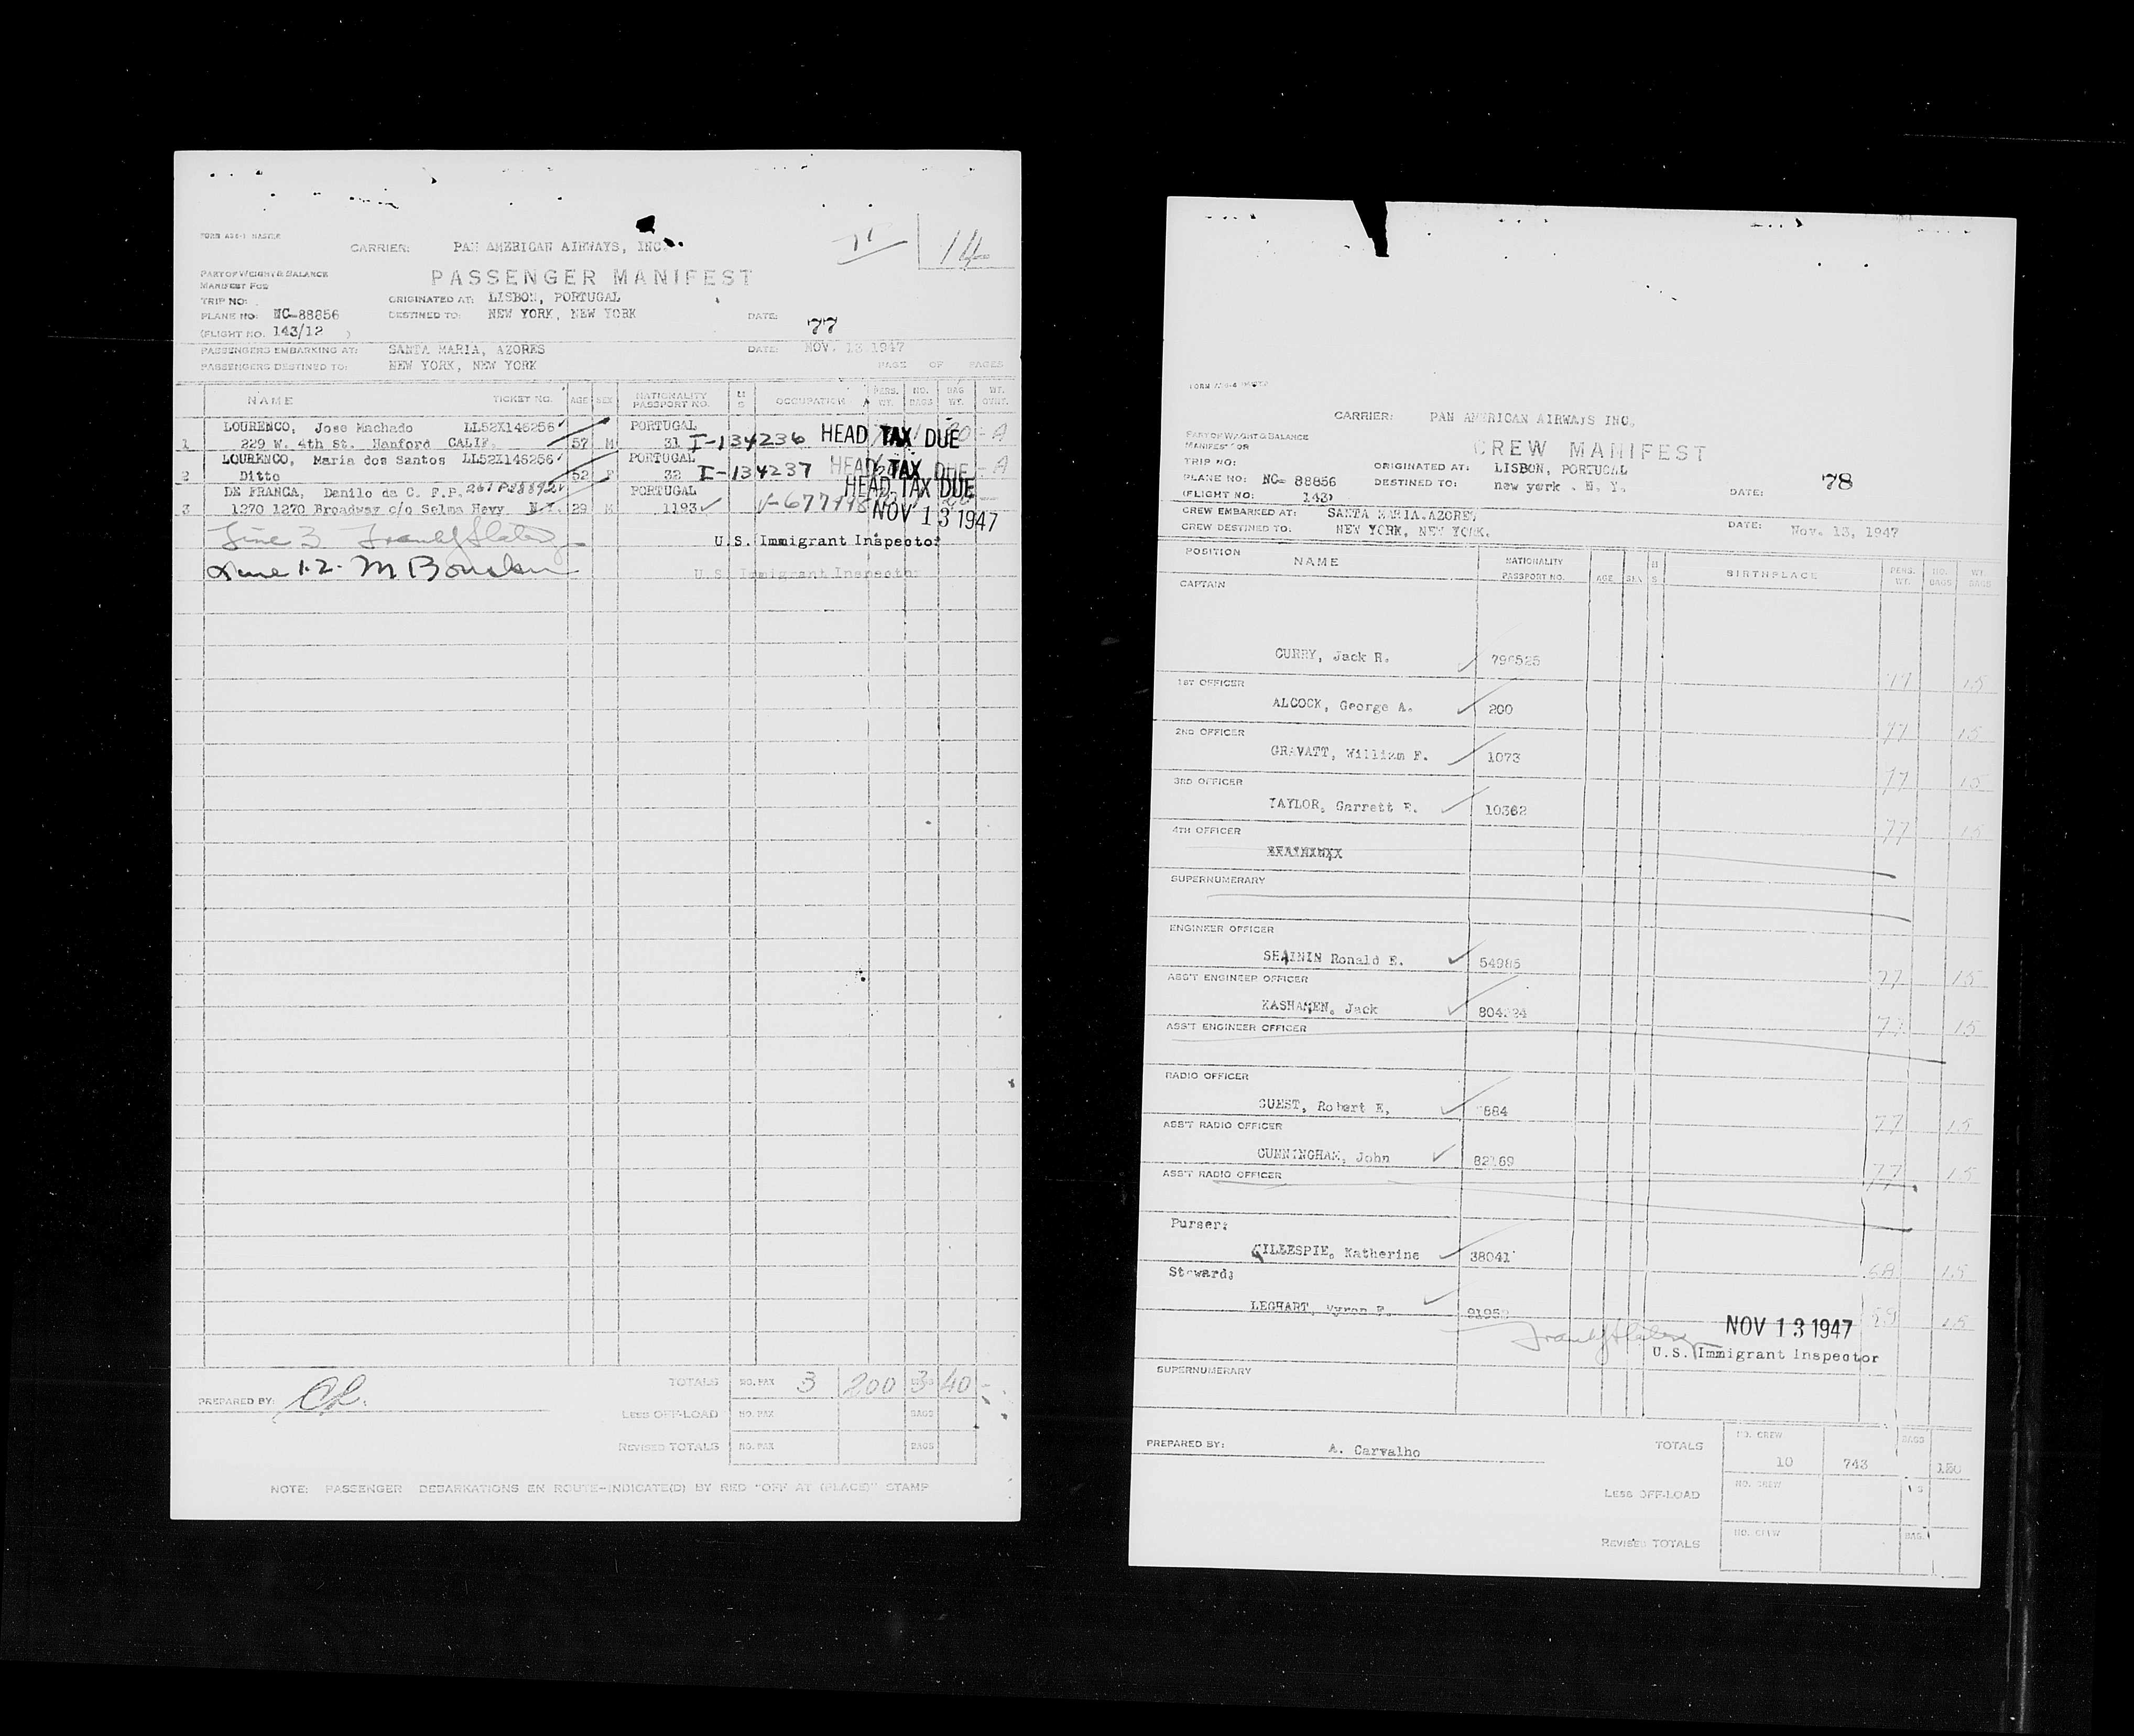 CARRIER: PAN AMERICAN AIRWAYS, INC.
14
PASSENGER MANIFEST
PART OF WEIGHT & BALANCE
MANIFEST FOR
TRIP NO:
ORIGINATED AT: LISBON, PORTUGAL
PLANE NO: NC-88856
DESTINED TO: NEW YORK, NEW YORK
DATE:
77
(FLIGHT NO. 143/12 )
PASSENGERS EMBARKING AT: SANTA MARIA, AZORES
DATE: NOV. 13 1947
PASSENGERS DESTINED TO: NEW YORK, NEW YORK
PAGE OF PAGES
NAME TICKET NO. AGE SEX NATIONALITY PASSPORT NO. M S OCCUPATION PERS. WT. NO. BAGS BAG WT. WT. OVRT.
LOURENCO, Jose Machado LL52X146256 PORTUGAL
1 229 W. 4th St. Hanford CALIF. 57 M 31 I-134236 HEAD TAX DUE
LOURENCO, Maria dos Santos LL52X146256 PORTUGAL
2 Ditto 52 F 32 I-134237 HEAD TAX DUE
DE FRANCA, Danilo da C. F.P. PORTUGAL HEAD TAX DUE
3 1270 1270 Broadway c/o Selma Hevy N.Y. 29 M 1193
NOV 13 1947
Line 3
U.S. Immigrant Inspector
Line 1.2.
U.S. Immigrant Inspector
TOTALS NO. PAX 3 200 3 40
PREPARED BY:
LESS OFF-LOAD NO. PAX BAGS
REVISED TOTALS NO. PAX BAGS
NOTE: PASSENGER DEBARKATIONS EN ROUTE-INDICATE(D) BY RED "OFF AT (PLACE)" STAMP
CARRIER: PAN AMERICAN AIRWAYS INC.
CREW MANIFEST
PART OF WEIGHT & BALANCE
MANIFEST FOR
TRIP NO:
ORIGINATED AT: LISBON, PORTUGAL
PLANE NO: NC- 88856
DESTINED TO: new york . N. Y.
DATE:
78
(FLIGHT NO: 143)
CREW EMBARKED AT: SANTA MARIA.AZORES
DATE: Nov. 13, 1947
CREW DESTINED TO: NEW YORK, NEW YORK.
POSITION NAME NATIONALITY PASSPORT NO. AGE SEX M S BIRTHPLACE PERS. WT. NO. BAGS WT. BAGS
CAPTAIN
CURRY, Jack R.
77 15
1ST OFFICER
ALCOCK, George A. 200
77 15
2ND OFFICER
GRAVATT, William F. 1073
77 15
3RD OFFICER
TAYLOR, Garrett E. 10362
77 15
4TH OFFICER
SUPERNUMERARY
ENGINEER OFFICER
SHAININ Ronald E. 54985
77 15
ASS'T ENGINEER OFFICER
KASHAMEN, Jack
77 15
ASS'T ENGINEER OFFICER
RADIO OFFICER
GUEST, Robert E,
77 15
ASS'T RADIO OFFICER
CUNNINGHAM, John
77 15
ASS'T RADIO OFFICER
Purser:
GILLESPIE, Katherine 38041
68 15
Steward:
LEGHART, Myron F.
59 15
NOV 13 1947
U.S. Immigrant Inspector
SUPERNUMERARY
PREPARED BY: A. Carvalho
TOTALS NO. CREW 10 743 BAGS 150
LESS OFF-LOAD NO. CREW
REVISED TOTALS NO. CREW BAG.